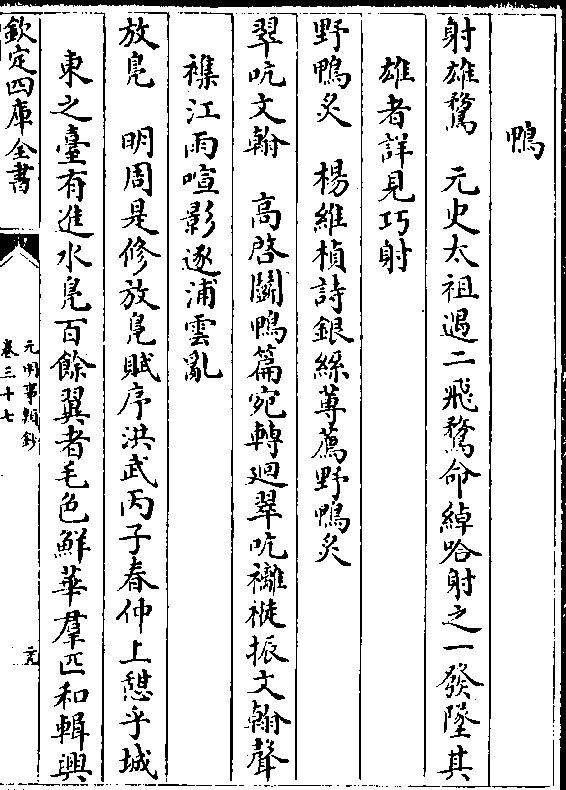 鴨
射雄鶩　元史太祖過二飛鶩命綽哈射之一發墜其
雄者詳見巧射
野鴨炙　楊維楨詩銀絲蓴薦野鴨炙
翠吭文翰　高啓鬬鴨篇宛轉迴翠吭褵褷振文翰聲
襍江雨喧影逐浦雲亂
放鳬　明周是修放鳬賦序洪武丙子春仲上憇乎城
東之臺有進水鳬百餘翼者毛色鮮華羣匹和輯興
欽定四庫全書
元明事類鈔
卷三十七